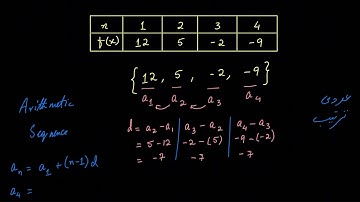 n 1 2 3 4
f(x) 12 5 -2 -9
{12, 5, -2, -9}
a₁ a₂ a₃ a₄
Arithmetic
Sequence
عددی
ترتیب
d = a₂-a₁ | a₃-a₂ | a₄-a₃
= 5-12 | -2-(5) | -9-(-2)
= -7 | -7 | -7
aₙ = a₁ + (n-1)d
a₄ =